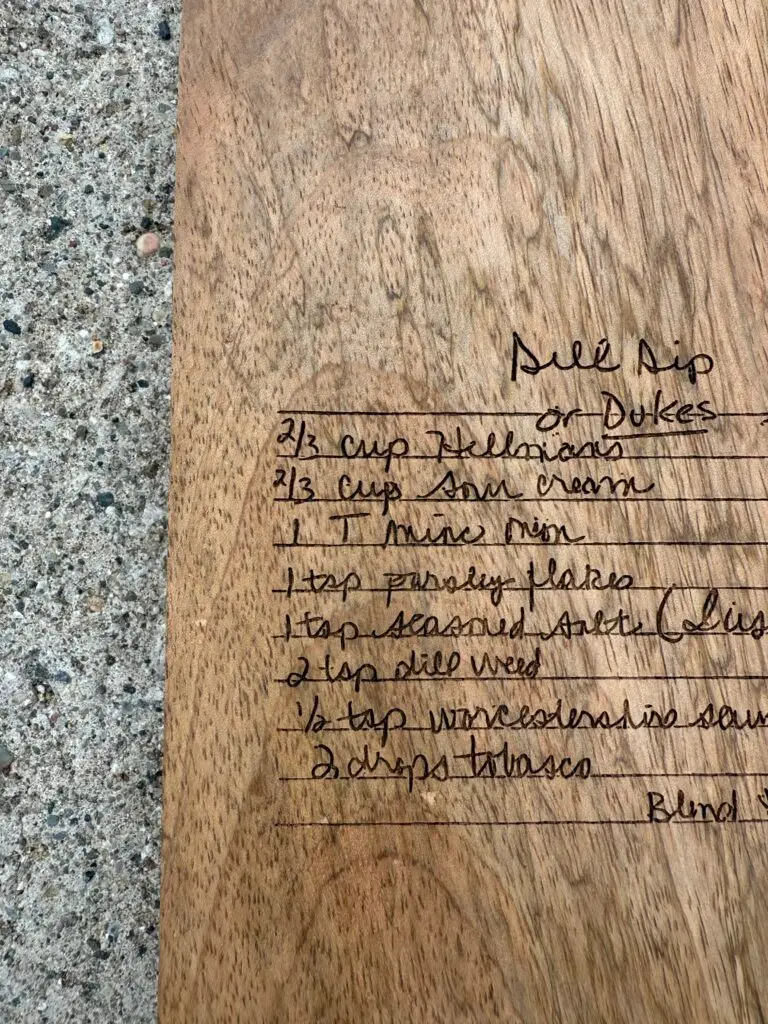 Dill Dip
or Dukes
2/3 cup Hellmans
2/3 cup sour cream
1 T minc onion
1 tsp parsley flakes
1 tsp seasoned salt (
2 tsp dill weed
1/2 tsp worcestershire
2 drops tobasco
Blend